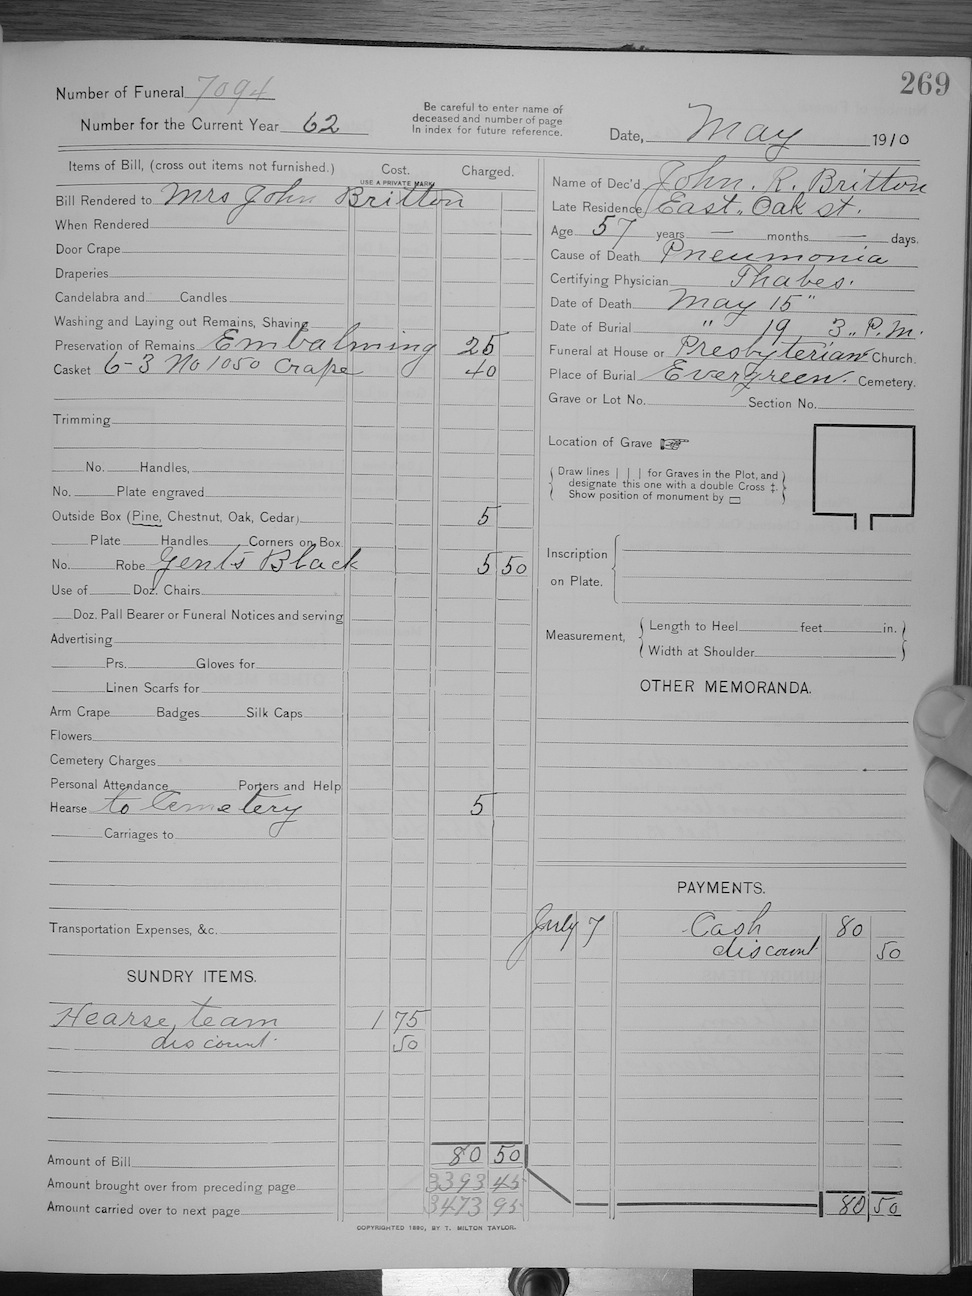 269
Number of Funeral 7094
Number for the Current Year 62
Be careful to enter name of
deceased and number of page
In index for future reference.
Date, May 1910
Items of Bill, (cross out items not furnished.) Cost. Charged.
USE A PRIVATE MARK
Bill Rendered to Mrs John Britton
When Rendered
Door Crape
Draperies
Candelabra and Candles
Washing and Laying out Remains, Shaving
Preservation of Remains Embalming 25
Casket 6-3 No 1050 Crape 40
Trimming
No. Handles,
No. Plate engraved
Outside Box (Pine, Chestnut, Oak, Cedar) 5
Plate Handles Corners on Box
No. Robe Gents Black 5 50
Use of Doz. Chairs
Doz. Pall Bearer or Funeral Notices and serving
Advertising
Prs. Gloves for
Linen Scarfs for
Arm Crape Badges Silk Caps
Flowers
Cemetery Charges
Personal Attendance Porters and Help
Hearse to Cemetery 5
Carriages to
Transportation Expenses, &c.
SUNDRY ITEMS.
Hearse, team 1 75
discount 50
Amount of Bill 80 50
Amount brought over from preceding page 3393 45
Amount carried over to next page 3473 95
COPYRIGHTED 1890, BY T. MILTON TAYLOR.
Name of Dec'd John. R. Britton
Late Residence East. Oak st.
Age 57 years — months — days.
Cause of Death Pneumonia
Certifying Physician Thabes.
Date of Death May 15"
Date of Burial " 19 3.. P.M.
Funeral at House or Presbyterian Church.
Place of Burial Evergreen. Cemetery.
Grave or Lot No. Section No.
Location of Grave
Draw lines | | | for Graves in the Plot, and
designate this one with a double Cross ‡.
Show position of monument by ▭
Inscription
on Plate.
Measurement,
Length to Heel feet in.
Width at Shoulder
OTHER MEMORANDA.
PAYMENTS.
July 7 Cash 80
discount 50
80 50